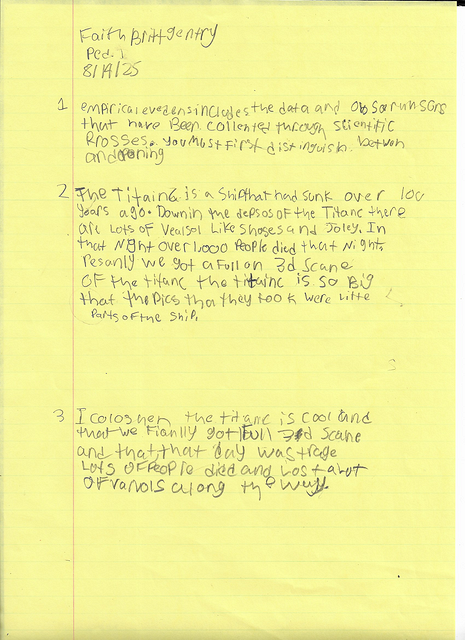 Faith Brittgentry
Ped. 1
8/19/25
1 empirical evedensincludes the data and obsarunsors
that have Been collented through scientific
Prosses. you must first distinguish. betwen
and opening
2 The Titainc is a shipthat had sunk over 100
years ago. Downin the depsos of the Titanc there
are lots of Vealsol like shoses and Joley. In
that Night over 1,000 People died that Night,
Resanly we got a full on 3d Scane
OF the titanc the titainc is so Big
that the Pics that they took were litte
Parts of the ship.
3 I colosnen the titanc is cool and
that we Fianlly got full 3d scane
and that that day was trage
Lots of People died and Lost alot
OF vanols along the way.